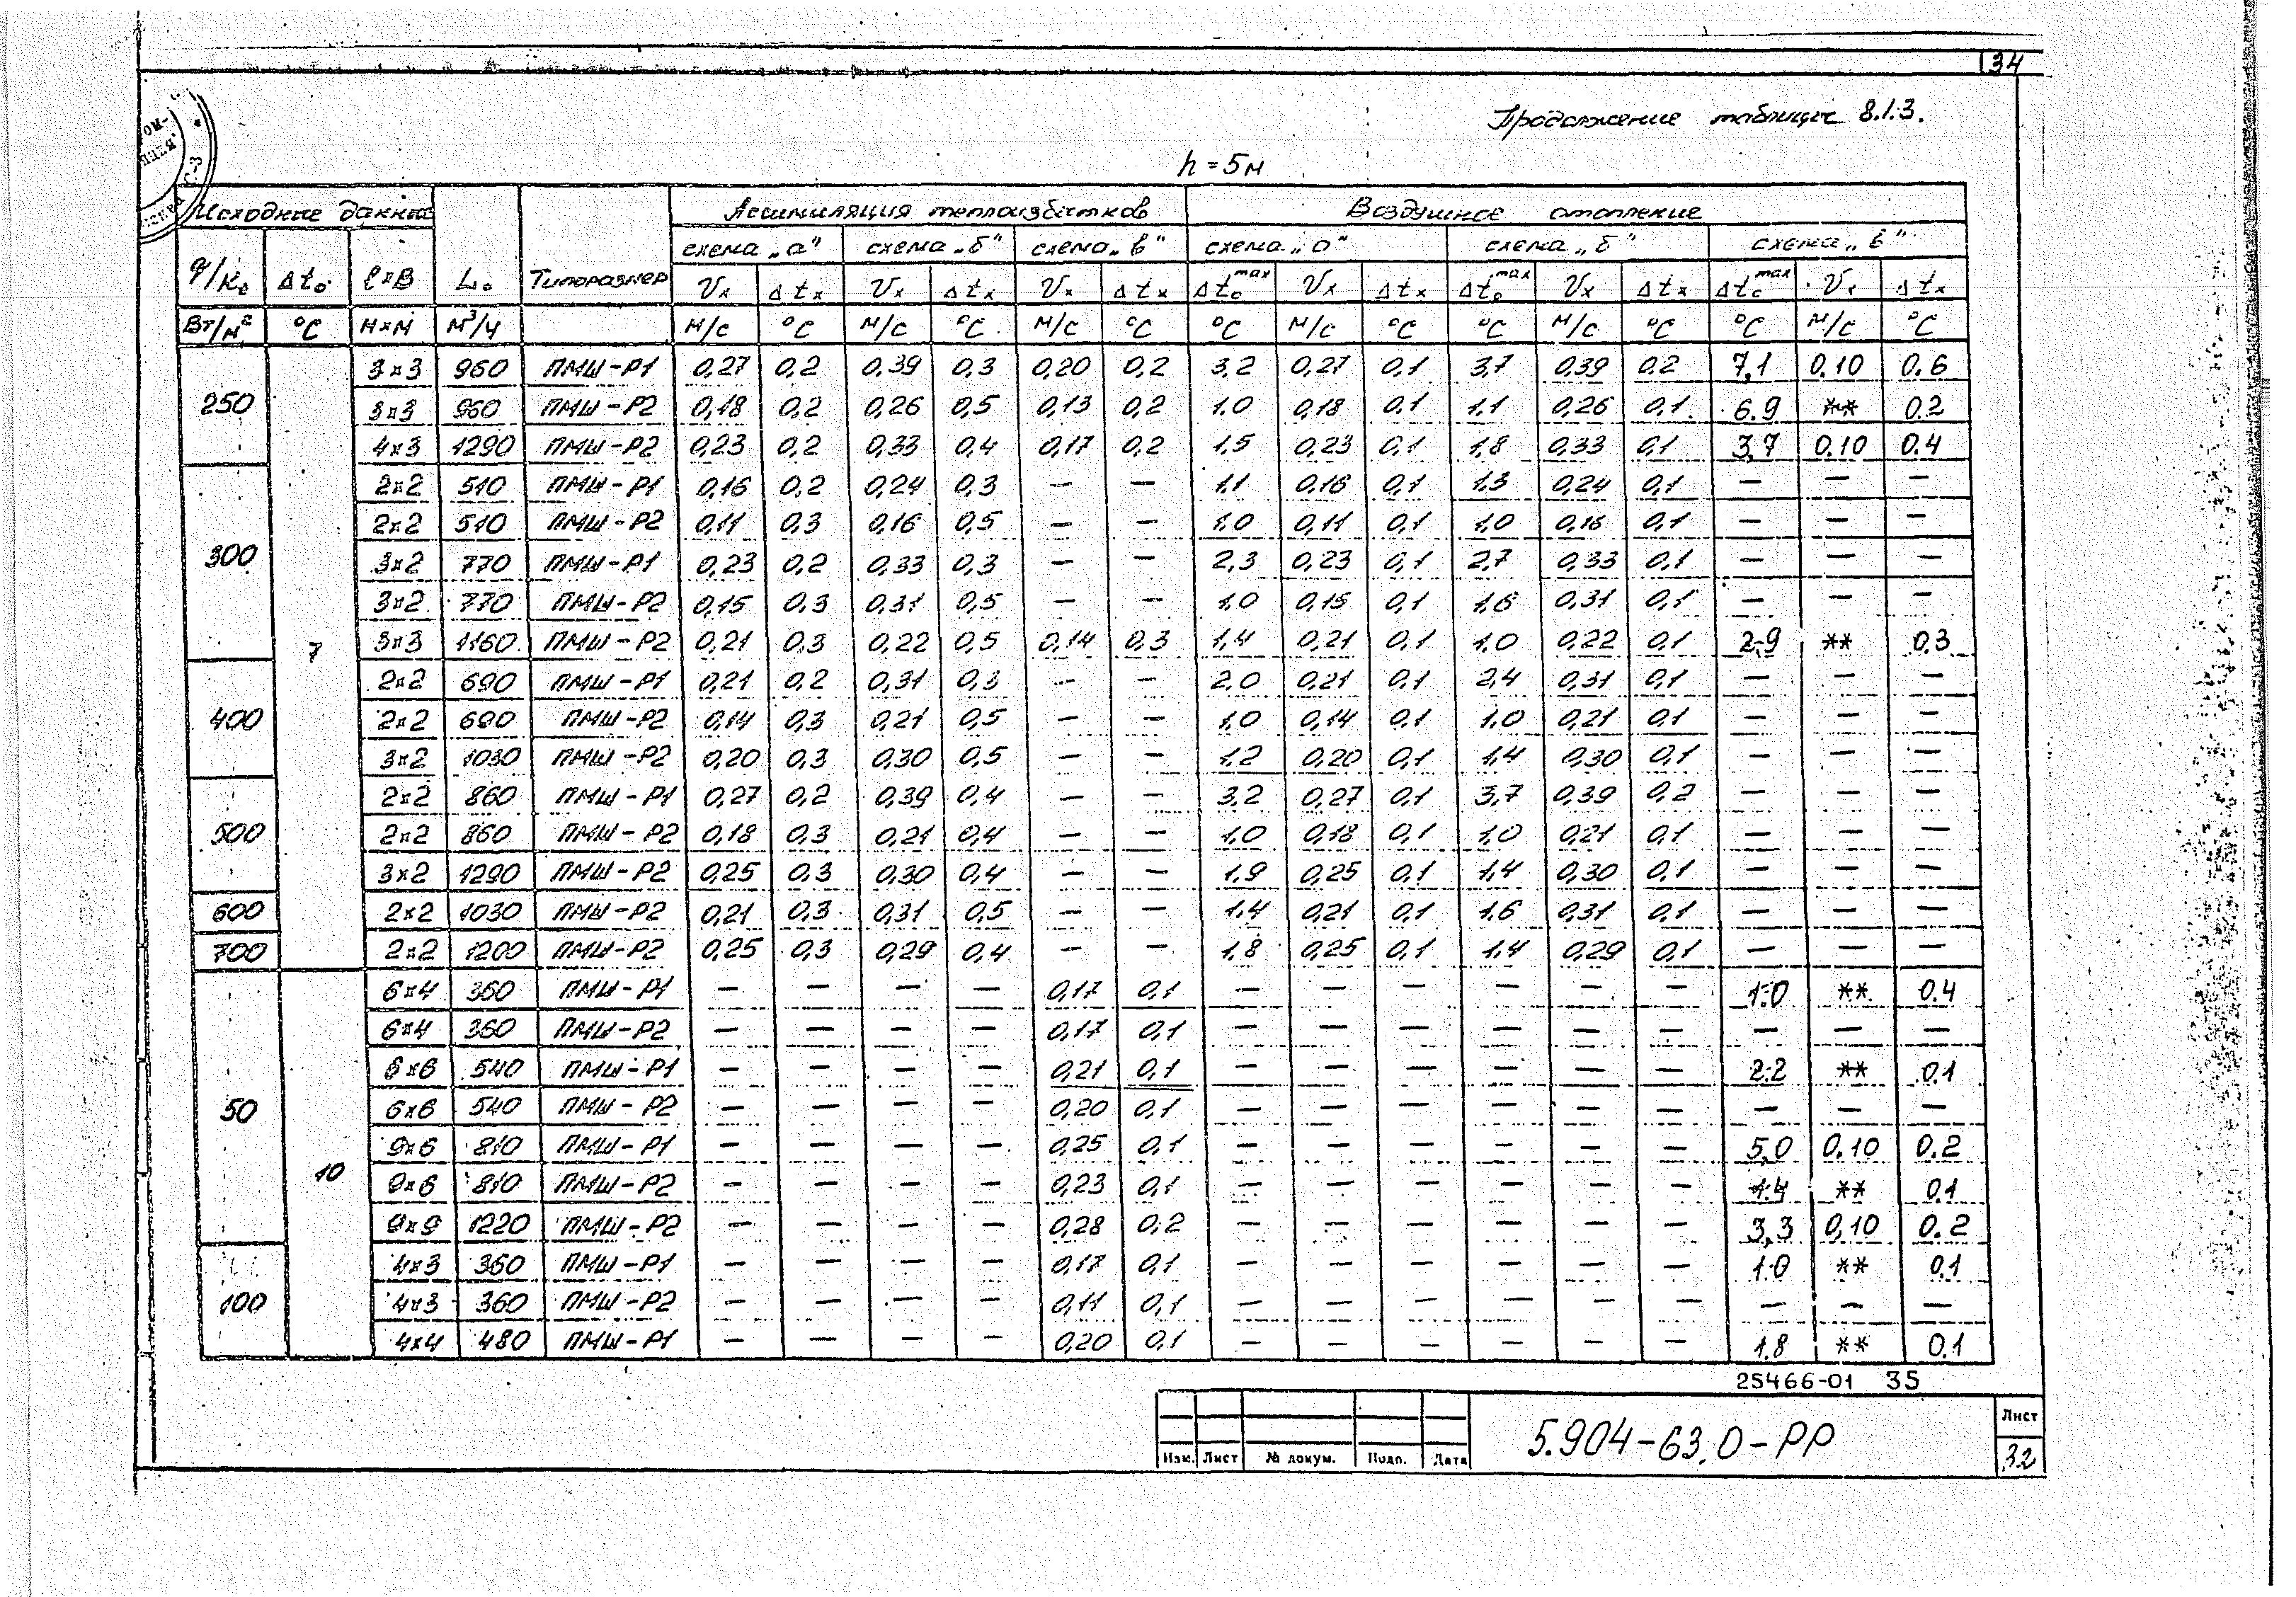 34
Продолжение таблицы 8.1.3.
h = 5 м
Исходные данные | L₀ | Типоразмер | Ассимиляция теплоизбытков | Воздушное отопление
схема „а" | схема „б" | схема „в" | схема „а" | схема „б" | схема „в"
q/k₀ | Δt₀ | ℓ×B | Vx | Δtx | Vx | Δtx | Vx | Δtx | Δt₀max | Vx | Δtx | Δt₀max | Vx | Δtx | Δt₀max | Vx | Δtx
Вт/м² | °С | м×м | м³/ч | м/с | °С | м/с | °С | м/с | °С | °С | м/с | °С | °С | м/с | °С | °С | м/с | °С
250 | 7 | 3×3 | 960 | ПМШ-Р1 | 0,27 | 0,2 | 0,39 | 0,3 | 0,20 | 0,2 | 3,2 | 0,27 | 0,1 | 3,7 | 0,39 | 0,2 | 7,1 | 0.10 | 0.6
3×3 | 960 | ПМШ-Р2 | 0,18 | 0,2 | 0,26 | 0,5 | 0,13 | 0,2 | 1.0 | 0,18 | 0,1 | 1.1 | 0,26 | 0,1 | 6.9 | ** | 0.2
4×3 | 1290 | ПМШ-Р2 | 0,23 | 0,2 | 0,33 | 0,4 | 0,17 | 0,2 | 1,5 | 0,23 | 0,1 | 1,8 | 0,33 | 0,1 | 3,7 | 0.10 | 0.4
300 | 2×2 | 510 | ПМШ-Р1 | 0,16 | 0,2 | 0,24 | 0,3 | — | — | 1,1 | 0,16 | 0,1 | 1.3 | 0,24 | 0,1 | — | — | —
2×2 | 510 | ПМШ-Р2 | 0,11 | 0,3 | 0,16 | 0,5 | — | — | 1,0 | 0,11 | 0,1 | 1,0 | 0,16 | 0,1 | — | — | —
3×2 | 770 | ПМШ-Р1 | 0,23 | 0,2 | 0,33 | 0,3 | — | — | 2,3 | 0,23 | 0,1 | 2,7 | 0,33 | 0,1 | — | — | —
3×2 | 770 | ПМШ-Р2 | 0,15 | 0,3 | 0,31 | 0,5 | — | — | 1,0 | 0,15 | 0,1 | 1,6 | 0,31 | 0,1 | — | — | —
3×3 | 1160 | ПМШ-Р2 | 0,21 | 0,3 | 0,22 | 0,5 | 0,14 | 0,3 | 1,4 | 0,21 | 0,1 | 1,0 | 0,22 | 0,1 | 2.9 | ** | 0.3
400 | 2×2 | 690 | ПМШ-Р1 | 0,21 | 0,2 | 0,31 | 0,3 | — | — | 2,0 | 0,21 | 0,1 | 2,4 | 0,31 | 0,1 | — | — | —
2×2 | 690 | ПМШ-Р2 | 0,14 | 0,3 | 0,21 | 0,5 | — | — | 1,0 | 0,14 | 0,1 | 1,0 | 0,21 | 0,1 | — | — | —
3×2 | 1030 | ПМШ-Р2 | 0,20 | 0,3 | 0,30 | 0,5 | — | — | 1,2 | 0,20 | 0,1 | 1,4 | 0,30 | 0,1 | — | — | —
500 | 2×2 | 860 | ПМШ-Р1 | 0,27 | 0,2 | 0,39 | 0,4 | — | — | 3,2 | 0,27 | 0,1 | 3,7 | 0,39 | 0,2 | — | — | —
2×2 | 860 | ПМШ-Р2 | 0,18 | 0,3 | 0,21 | 0,4 | — | — | 1,0 | 0,18 | 0,1 | 1,0 | 0,21 | 0,1 | — | — | —
3×2 | 1290 | ПМШ-Р2 | 0,25 | 0,3 | 0,30 | 0,4 | — | — | 1,9 | 0,25 | 0,1 | 1,4 | 0,30 | 0,1 | — | — | —
600 | 2×2 | 1030 | ПМШ-Р2 | 0,21 | 0,3 | 0,31 | 0,5 | — | — | 1,4 | 0,21 | 0,1 | 1,6 | 0,31 | 0,1 | — | — | —
700 | 2×2 | 1200 | ПМШ-Р2 | 0,25 | 0,3 | 0,29 | 0,4 | — | — | 1,8 | 0,25 | 0,1 | 1,4 | 0,29 | 0,1 | — | — | —
50 | 10 | 6×4 | 360 | ПМШ-Р1 | — | — | — | — | 0,17 | 0,1 | — | — | — | — | — | — | 1.0 | ** | 0.4
6×4 | 360 | ПМШ-Р2 | — | — | — | — | 0,17 | 0,1 | — | — | — | — | — | — | — | — | —
6×6 | 540 | ПМШ-Р1 | — | — | — | — | 0,21 | 0,1 | — | — | — | — | — | — | 2.2 | ** | 0.1
6×6 | 540 | ПМШ-Р2 | — | — | — | — | 0,20 | 0,1 | — | — | — | — | — | — | — | — | —
9×6 | 810 | ПМШ-Р1 | — | — | — | — | 0,25 | 0,1 | — | — | — | — | — | — | 5,0 | 0.10 | 0.2
9×6 | 810 | ПМШ-Р2 | — | — | — | — | 0,23 | 0,1 | — | — | — | — | — | — | 1.4 | ** | 0.1
9×9 | 1220 | ПМШ-Р2 | — | — | — | — | 0,28 | 0,2 | — | — | — | — | — | — | 3,3 | 0,10 | 0.2
100 | 4×3 | 360 | ПМШ-Р1 | — | — | — | — | 0,17 | 0,1 | — | — | — | — | — | — | 1.0 | ** | 0.1
4×3 | 360 | ПМШ-Р2 | — | — | — | — | 0,11 | 0,1 | — | — | — | — | — | — | — | — | —
4×4 | 480 | ПМШ-Р1 | — | — | — | — | 0,20 | 0,1 | — | — | — | — | — | — | 1.8 | ** | 0.1
25466-01 35
Изм. Лист № докум. Подп. Дата
5.904-63.0-РР
Лист
32